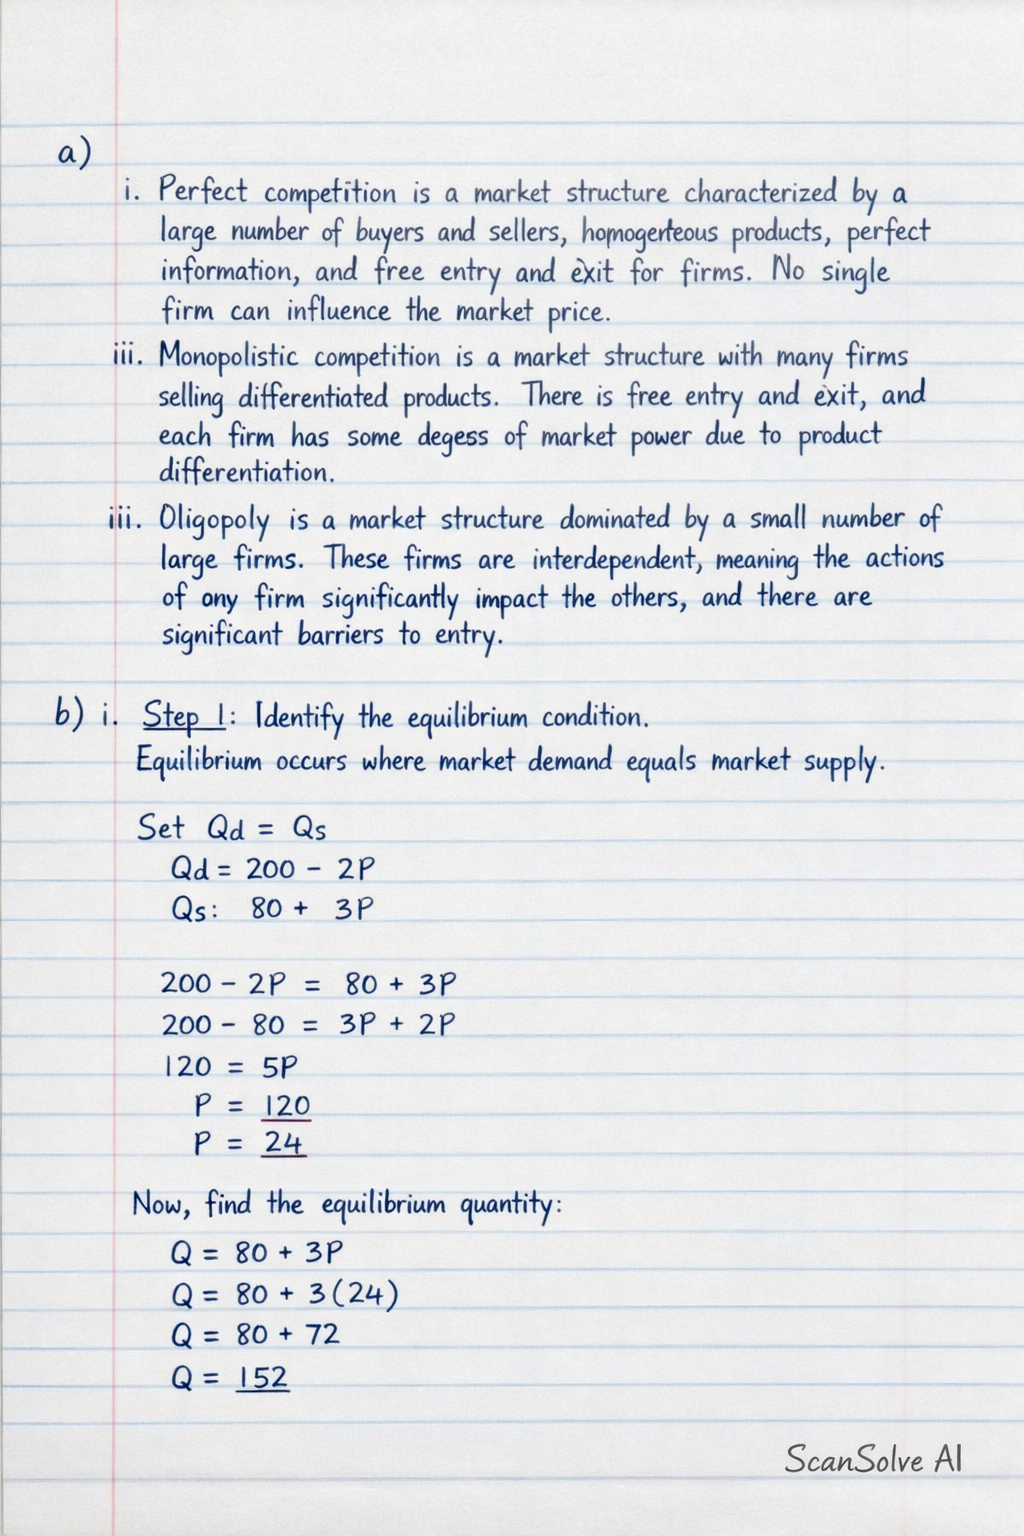 a)
i. Perfect competition is a market structure characterized by a
large number of buyers and sellers, homogerteous products, perfect
information, and free entry and exit for firms. No single
firm can influence the market price.
iii. Monopolistic competition is a market structure with many firms
selling differentiated products. There is free entry and exit, and
each firm has some degess of market power due to product
differentiation.
iii. Oligopoly is a market structure dominated by a small number of
large firms. These firms are interdependent, meaning the actions
of ony firm significantly impact the others, and there are
significant barriers to entry.
b) i. Step 1: Identify the equilibrium condition.
Equilibrium occurs where market demand equals market supply.
Set Qd = Qs
Qd = 200 - 2P
Qs: 80 + 3P
200 - 2P = 80 + 3P
200 - 80 = 3P + 2P
120 = 5P
P = 120
P = 24
Now, find the equilibrium quantity:
Q = 80 + 3P
Q = 80 + 3(24)
Q = 80 + 72
Q = 152
ScanSolve AI